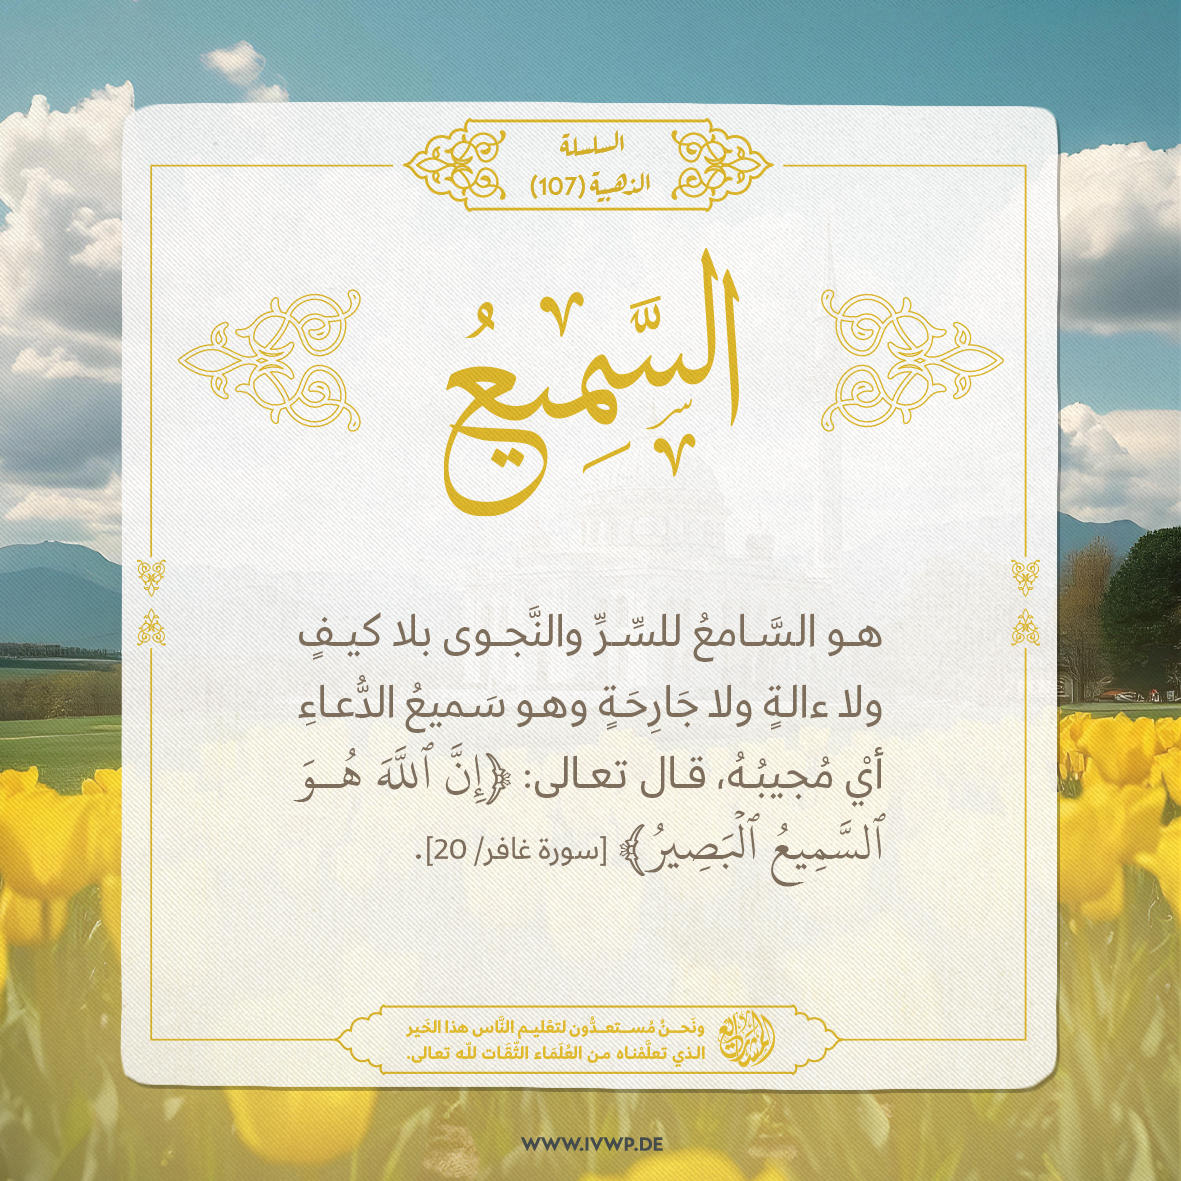 السلسلة
الذهبية (107)
السَّمِيعُ
هو السَّامعُ للسِّرِّ والنَّجوى بلا كيفٍ
ولا ءالةٍ ولا جَارِحَةٍ وهو سَميعُ الدُّعاءِ
أيْ مُجيبُهُ، قال تعالى: ﴿إِنَّ ٱللَّهَ هُوَ
ٱلسَّمِيعُ ٱلْبَصِيرُ﴾ [سورة غافر/ 20].
ونَحنُ مُستعدُّون لتعْليمِ النَّاس هذا الخَير
الذي تعلَّمْناه من العُلَمَاء الثِّقَات للَّه تعالى.
WWW.IVWP.DE